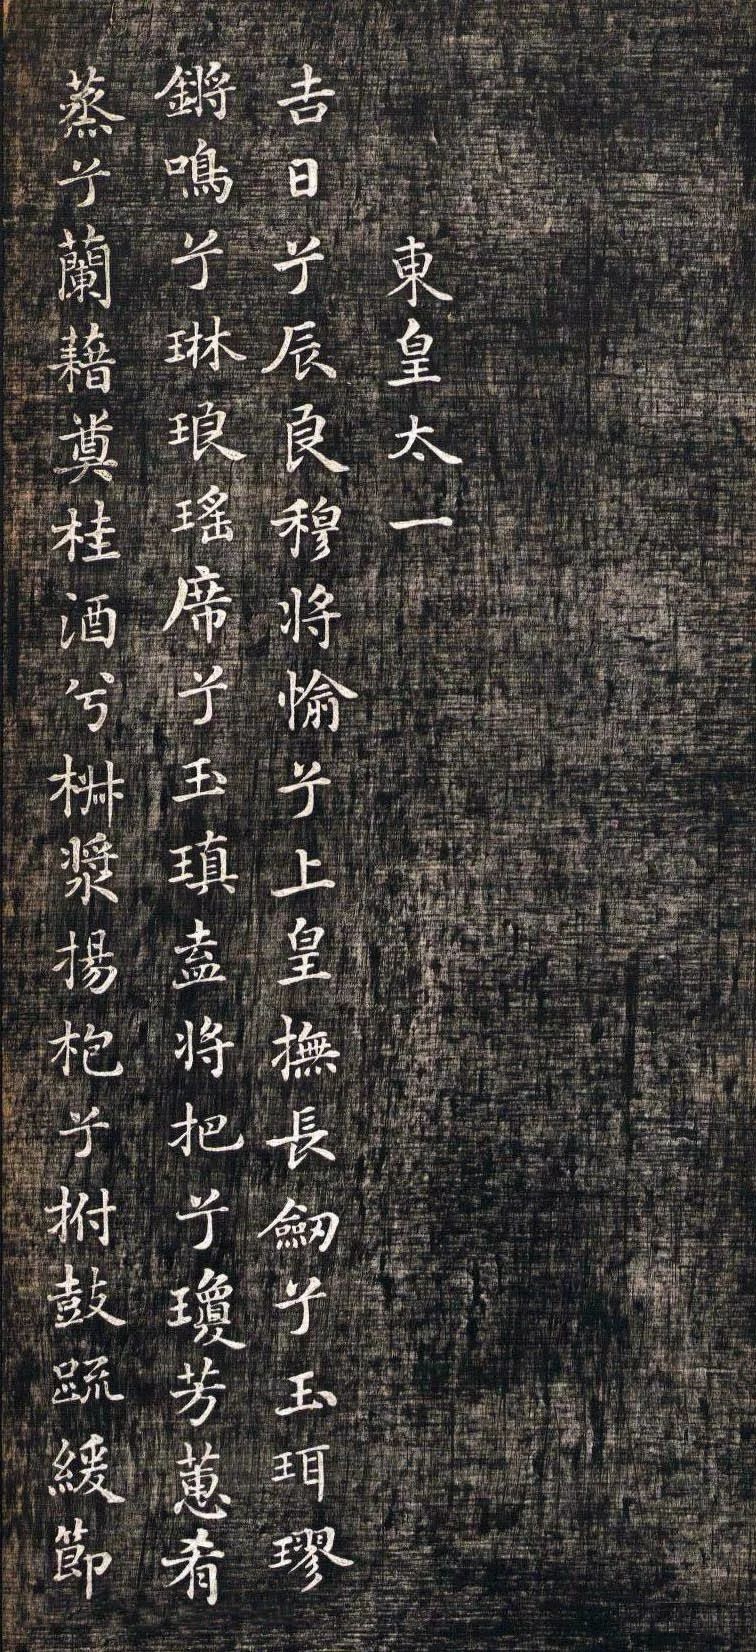 東皇太一
吉日兮辰良穆将愉兮上皇撫長劔兮玉珥璆
鏘鳴兮琳琅瑤席兮玉瑱盍将把兮瓊芳蕙肴
蒸兮蘭藉奠桂酒兮椒漿揚枹兮拊鼓疏緩節